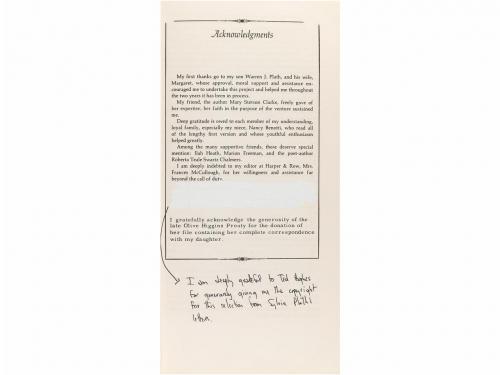 Acknowledgments
My first thanks go to my son Warren J. Plath, and his wife,
Margaret, whose approval, moral support and assistance en-
couraged me to undertake this project and helped me throughout
the two years it has been in process.
My friend, the author Mary Stetson Clarke, freely gave of
her expertise; her faith in the purpose of the venture sustained
me.
Deep gratitude is owed to each member of my understanding,
loyal family, especially my niece, Nancy Benotti, who read all
of the lengthy first version and whose youthful enthusiasm
helped greatly.
Among the many supportive friends, these deserve special
mention: Ilah Heath, Marion Freeman, and the poet-author
Roberta Teale Swartz Chalmers.
I am deeply indebted to my editor at Harper & Row, Mrs.
Frances McCullough, for her willingness and assistance far
beyond the call of duty.
I gratefully acknowledge the generosity of the
late Olive Higgins Prouty for the donation of
her file containing her complete correspondence
with my daughter.
I am deeply grateful to Ted Hughes
for generously giving me the copyright
for this selection from Sylvia Plath's
letters.